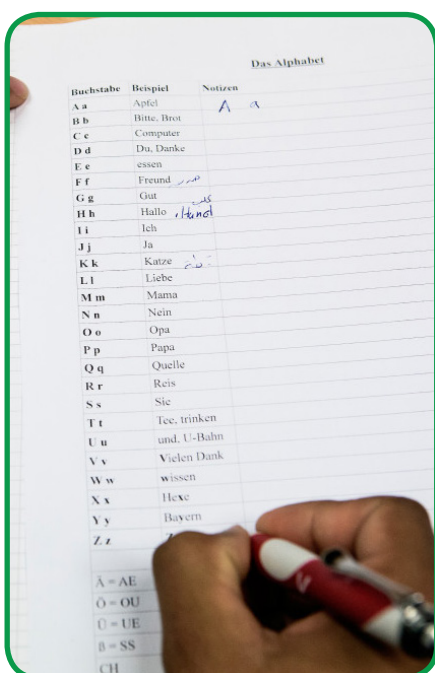 Das Alphabet
Buchstabe Beispiel Notizen
A a Apfel A a
B b Bitte, Brot
C c Computer
D d Du, Danke
E e essen
F f Freund
G g Gut
H h Hallo , Hund كلب
I i Ich
J j Ja
K k Katze قطة
L l Liebe
M m Mama
N n Nein
O o Opa
P p Papa
Q q Quelle
R r Reis
S s Sie
T t Tee, trinken
U u und, U-Bahn
V v Vielen Dank
W w wissen
X x Hexe
Y y Bayern
Z z
Ä = AE
Ö = OU
Ü = UE
ß = SS
CH